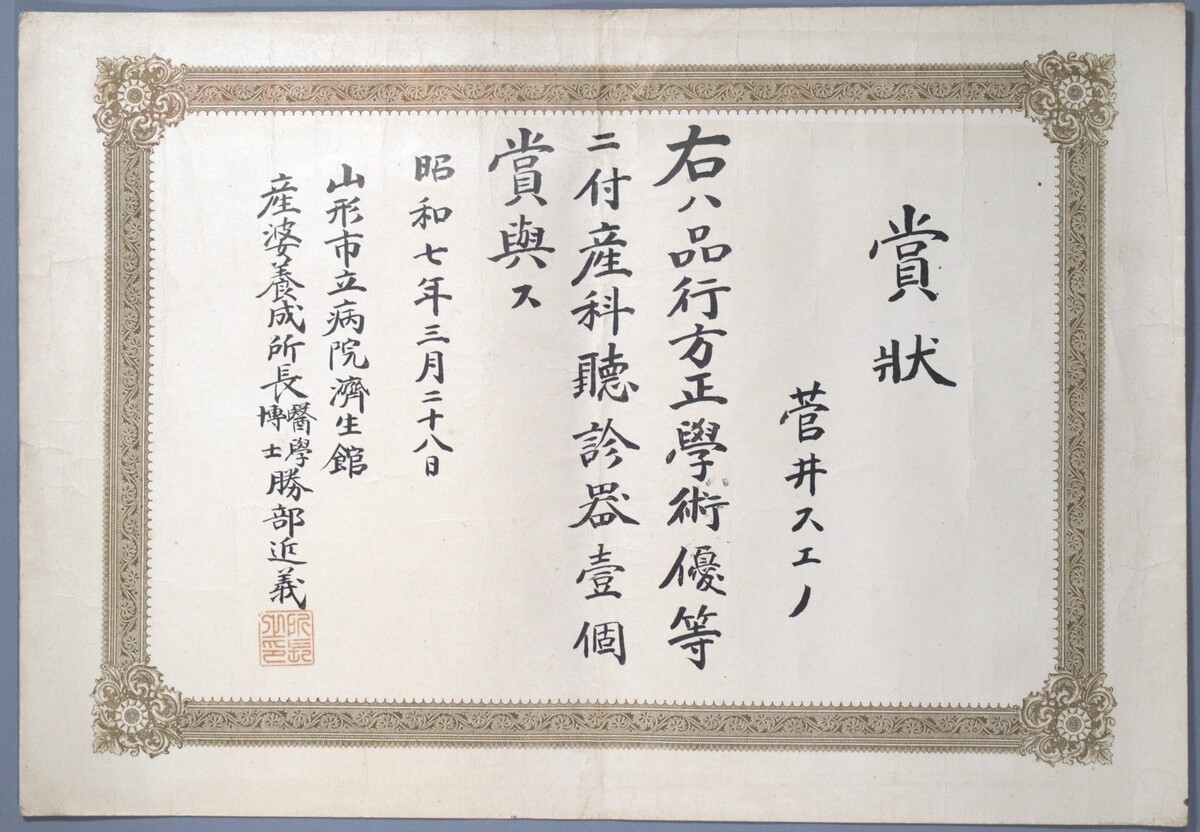 賞狀
菅井スエノ
右ハ品行方正學術優等
ニ付産科聽診器壹個
賞與ス
昭和七年三月二十八日
山形市立病院濟生館
産婆養成所長醫學博士勝部近義
所長之印